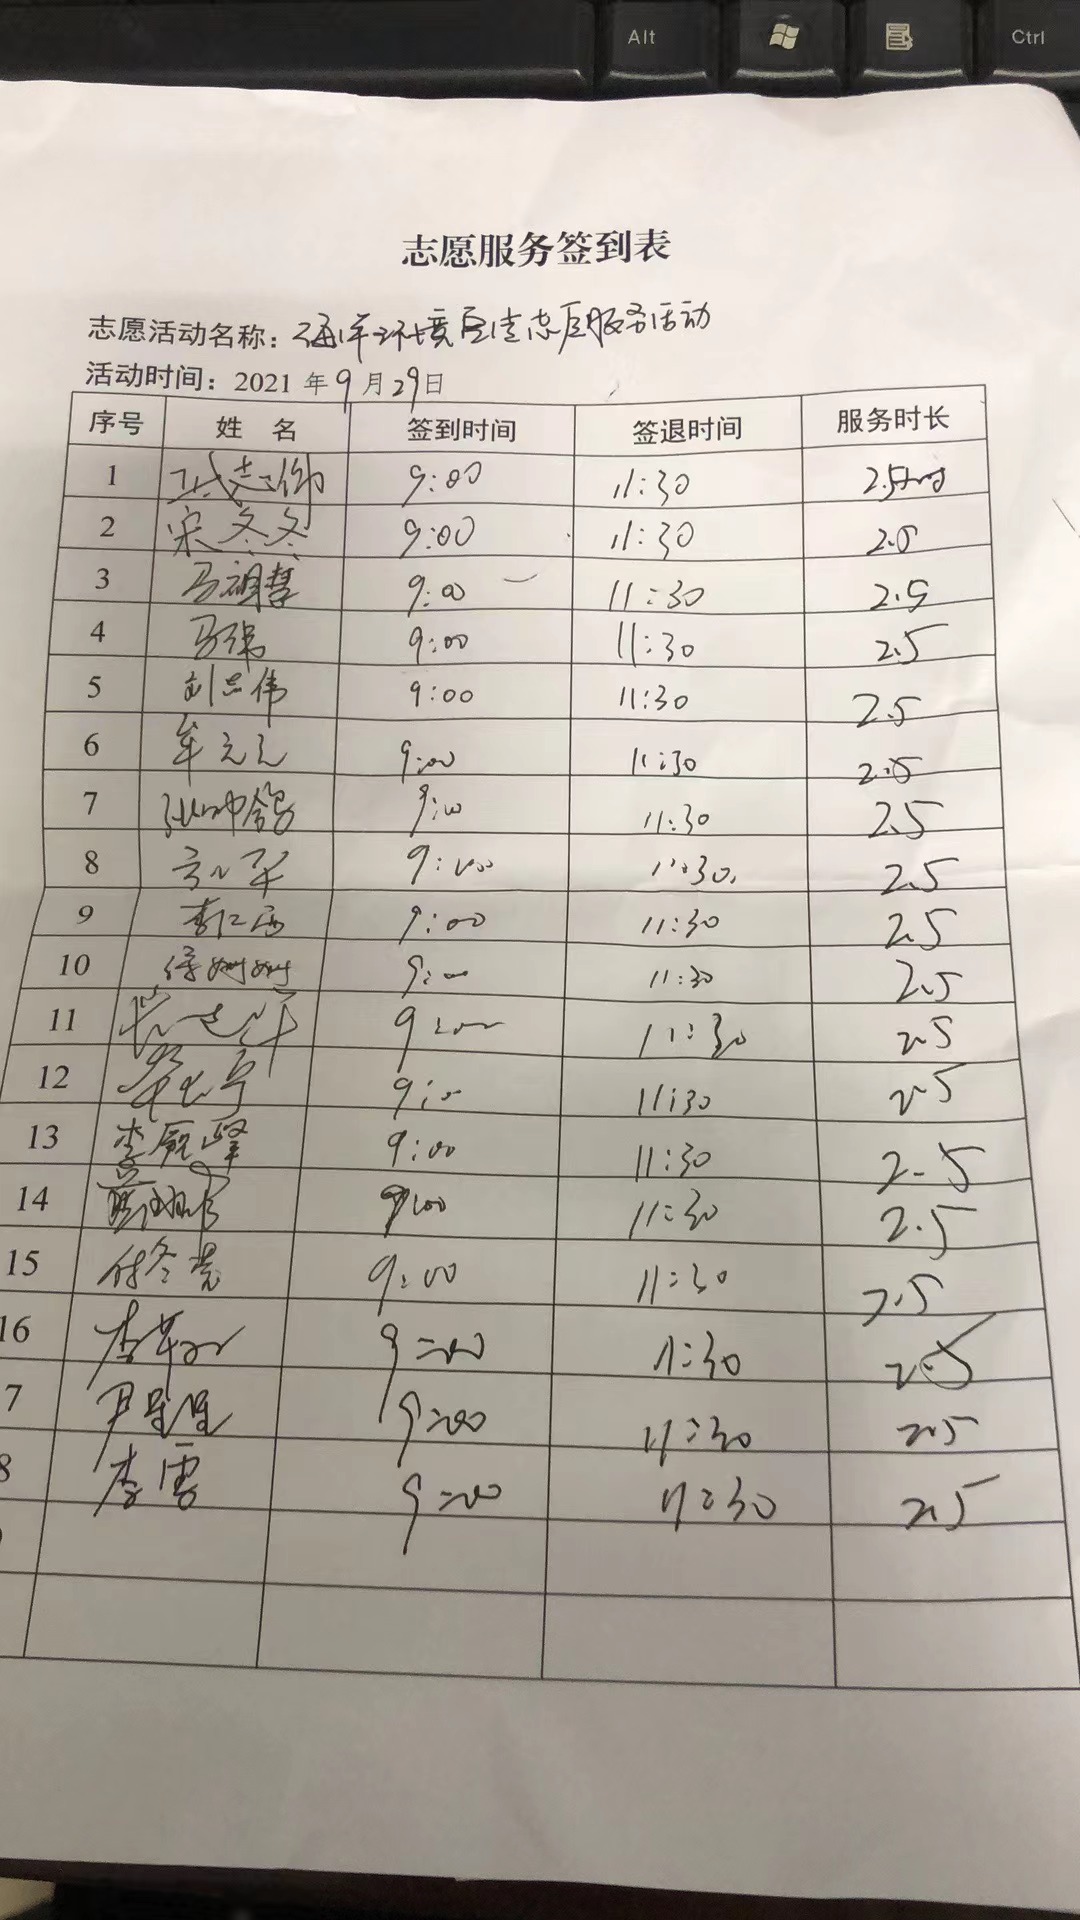 Alt
Ctrl
志愿服务签到表
志愿活动名称：海洋环境宣传志愿服务活动
活动时间：2021年9月29日
序号 姓 名 签到时间 签退时间 服务时长
1 志 9:00 11:30 2.5小时
2 宋冬冬 9:00 11:30 2.5
3 马祖慧 9:00 11:30 2.5
4 马强 9:00 11:30 2.5
5 刘志伟 9:00 11:30 2.5
6 牟元元 9:00 11:30 2.5
7 9:00 11:30 2.5
8 9:00 11:30 2.5
9 李仁 9:00 11:30 2.5
10 徐姗姗 9:00 11:30 2.5
11 9:00 11:30 2.5
12 9:00 11:30 2.5
13 李 峰 9:00 11:30 2.5
14 9:00 11:30 2.5
15 付冬 9:00 11:30 2.5
16 李 9:00 11:30 2.5
7 尹 9:00 11:30 2.5
8 李雪 9:00 11:30 2.5